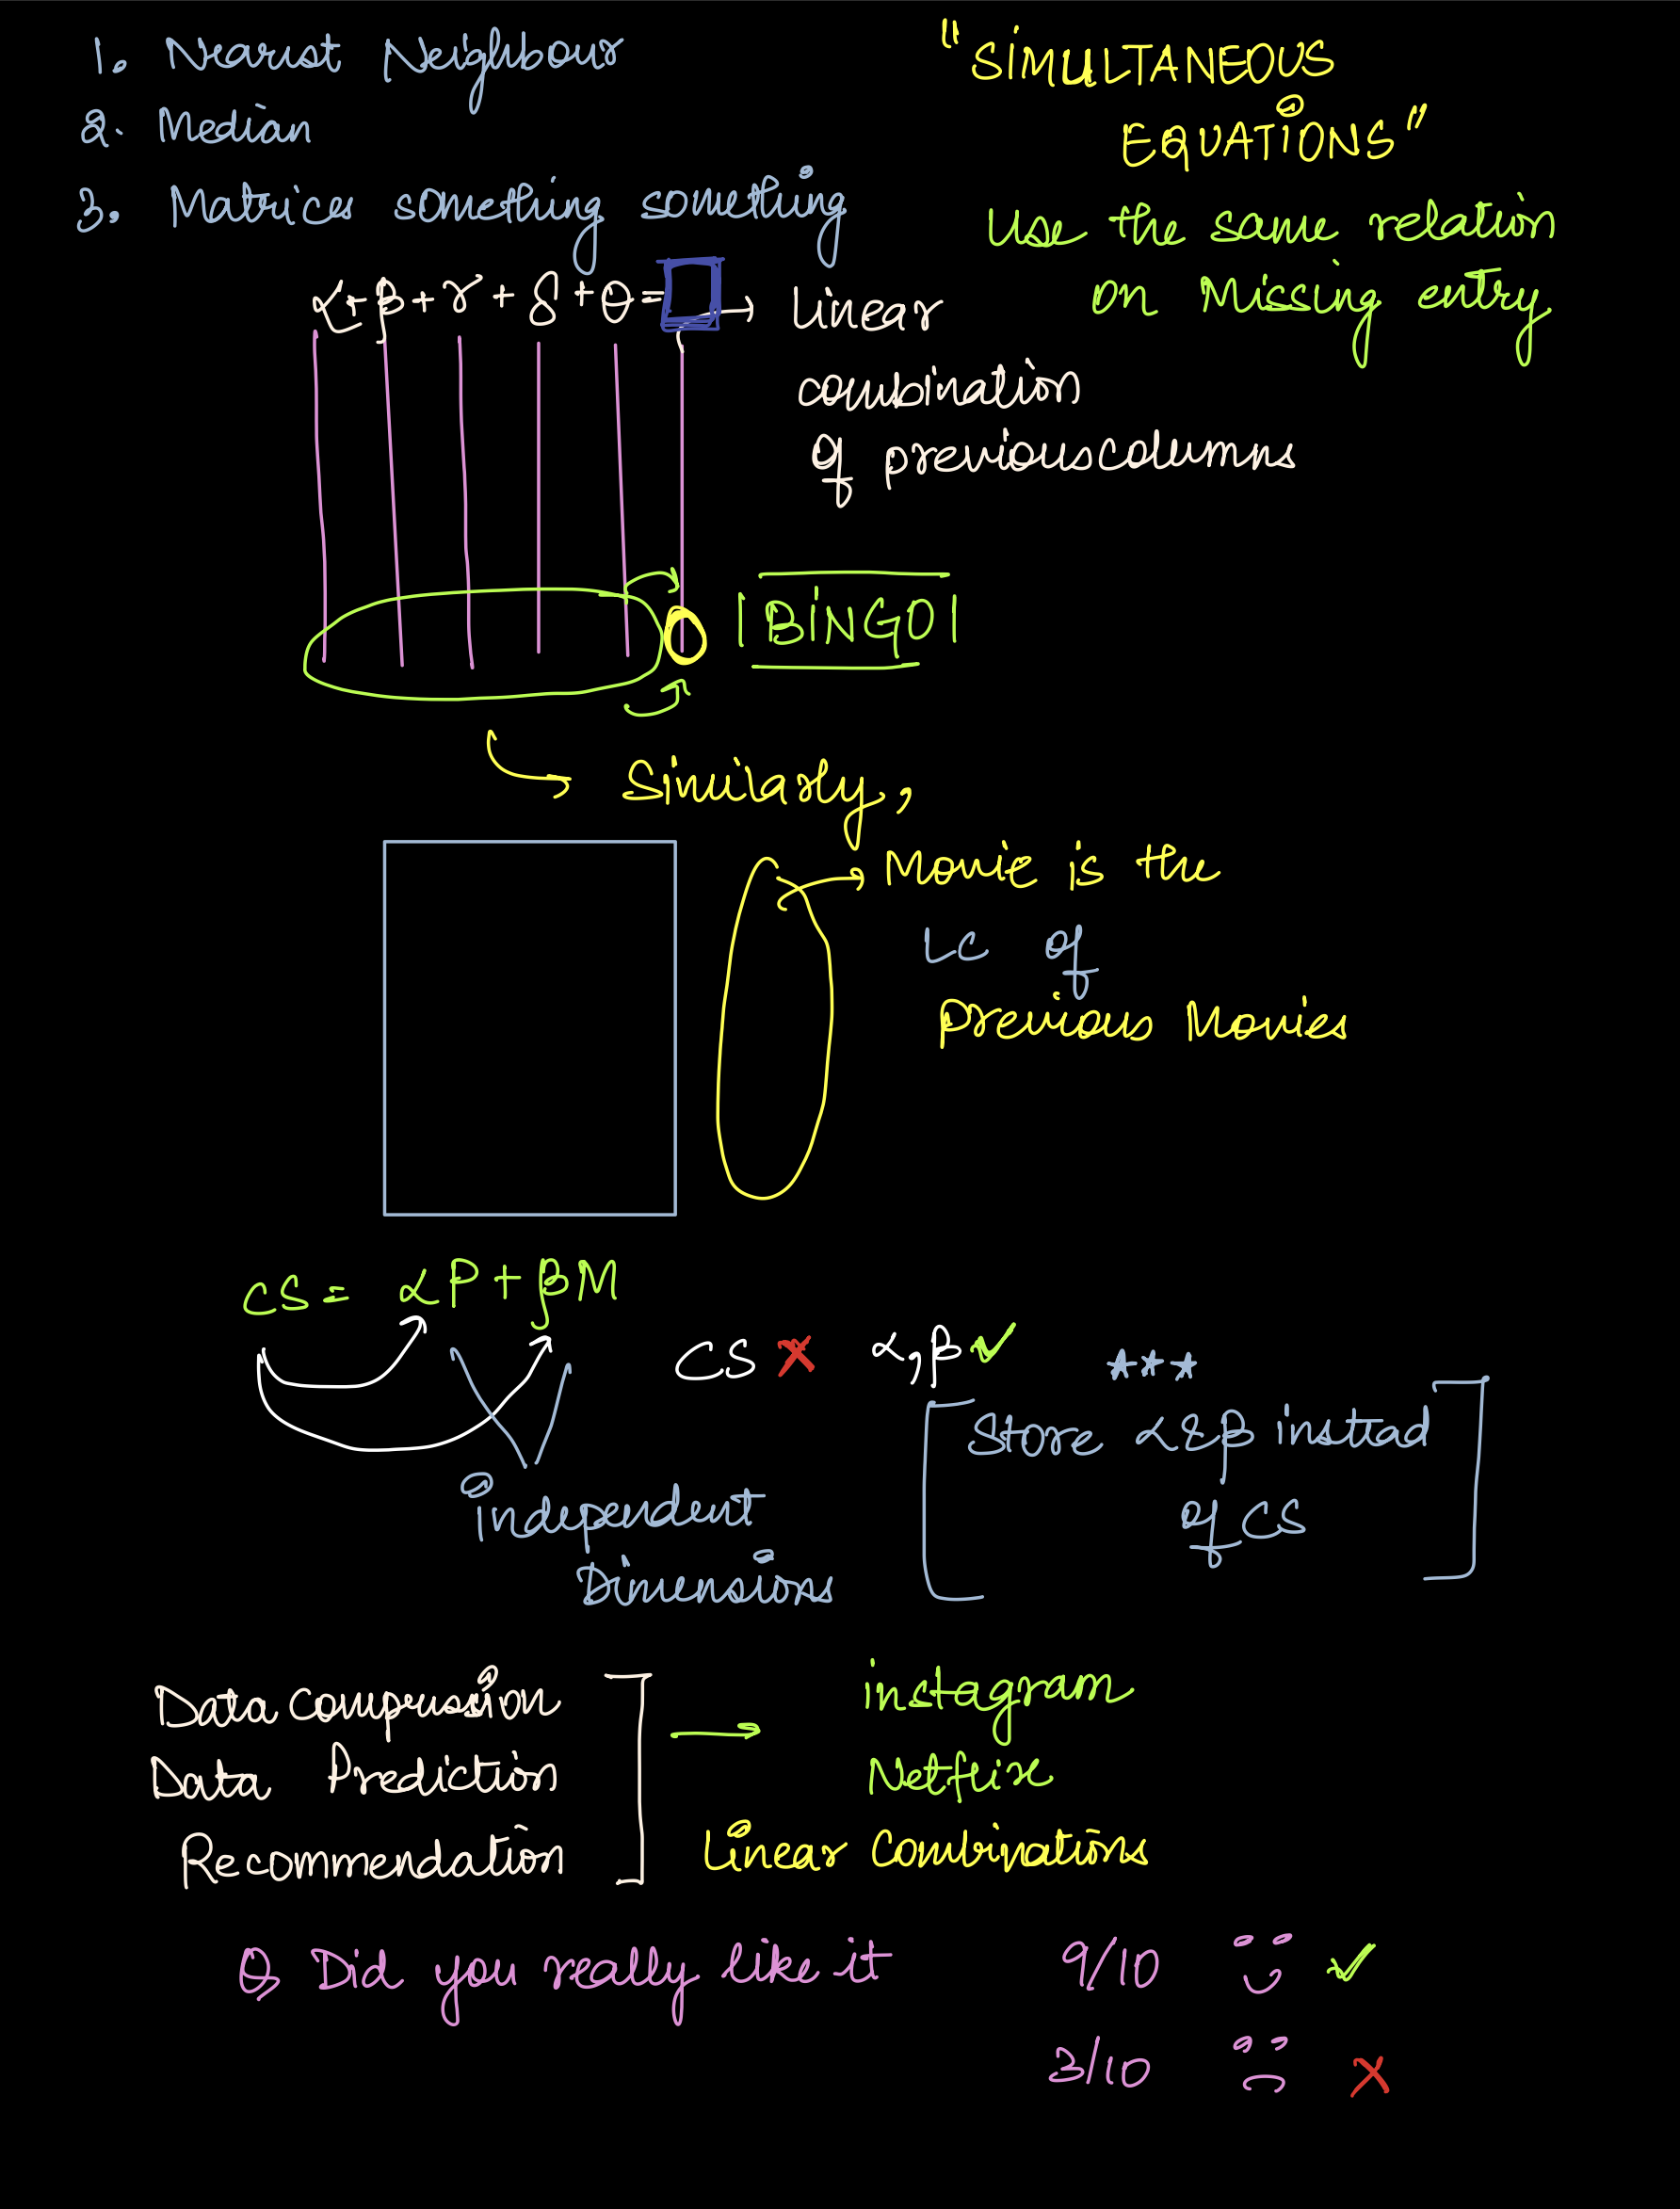 1. Nearest Neighbour
2. Median
3. Matrices something something
"SIMULTANEOUS
EQUATIONS"
Use the same relation
on Missing entry
α+β+γ+δ+θ=
→ Linear
combination
of previous columns
|BINGO|
→ Similarly,
→ Movie is the
LC of
previous Movies
CS = αP+βM
CS ✗ α,β ✓
***
[Store α&β instead
of CS]
independent
Dimensions
Data Compression
Data Prediction
Recommendation
→ instagram
Netflix
Linear Combinations
Q Did you really like it
9/10 ✓
3/10 ✗